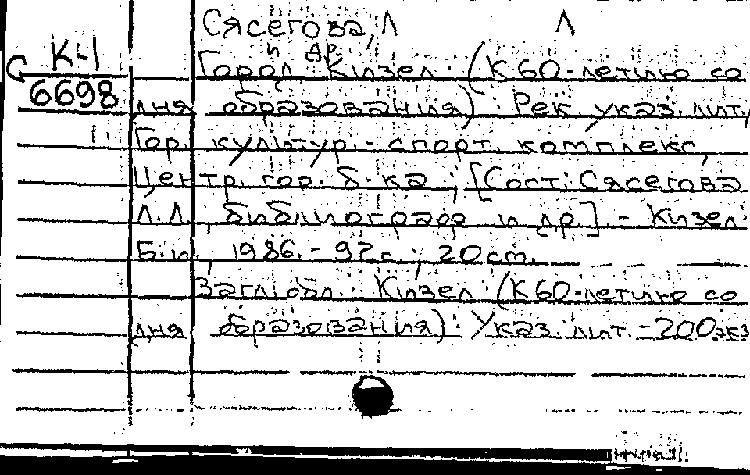 Сясегова, Л
Л
и др.
К-1
С
6698
Город Кизел: (К 60-летию со
дня образования): Рек. указ. лит.
Гор. культур.-спорт. комплекс,
Центр. гор. б-ка; [Сост.: Сясегова
Л.Л., библиограф и др.]. - Кизел:
Б.и., 1986. - 92с.; 20см.
Загл. обл.: Кизел: (К 60-летию со
дня образования): Указ. лит. - 200экз